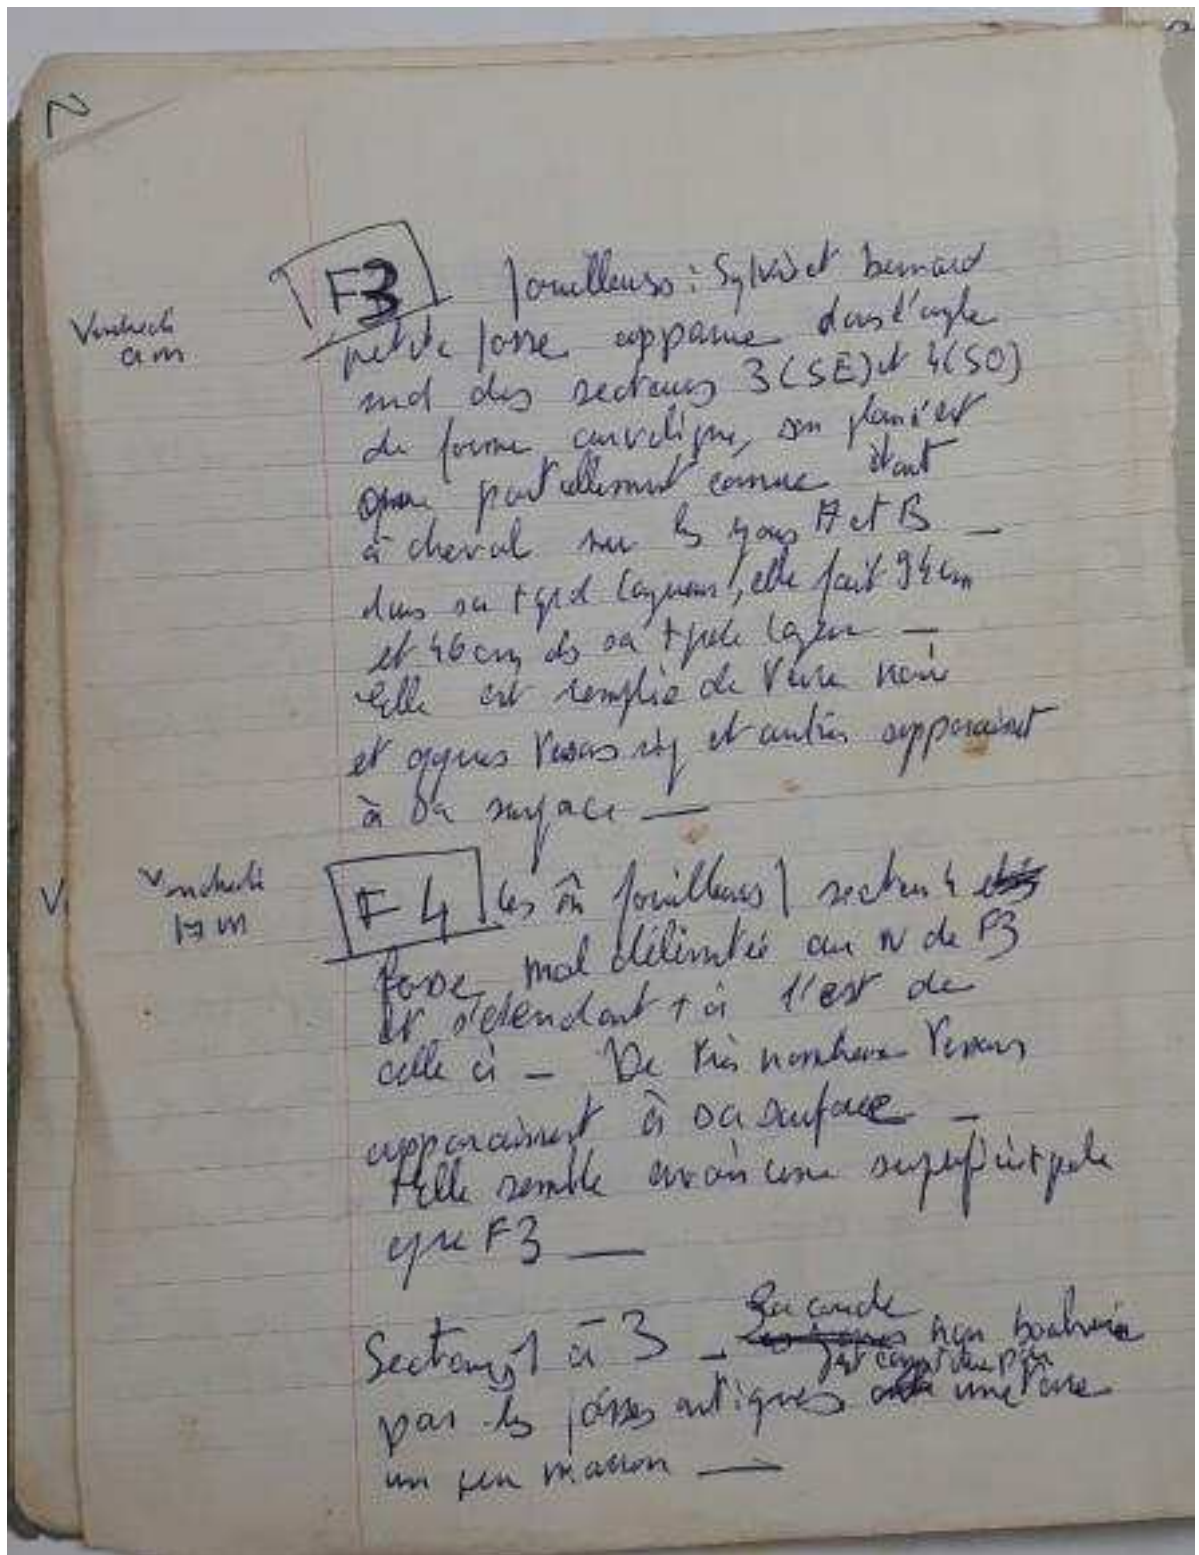 N
F3 fouilleurs : Sylvie et bernard
Vendredi
am
petite fosse apparue dans l'angle
sud des secteurs 3(SE) et 4(SO)
de forme curviligne, son plan n'est
que partiellement connue étant
à cheval sur les zones A et B —
dans sa + gde longueur, elle fait 94 cm
et 46 cm ds sa + gde largeur —
Elle est remplie de terre noire
et qques tessons sig et autres apparaissent
à sa surface —
Vendredi
am
F4 les m̂ fouilleurs secteur 4
fosse mal délimitée au N de F3
et s'étendant + à l'est de
celle ci — De très nombreux tessons
apparaissent à sa surface —
Elle semble avoir une superficie + gde
que F3 —
Secteurs 1 à 3 — La couche non boulversée
est constituée par
par les fosses antiques une terre
un peu marron —